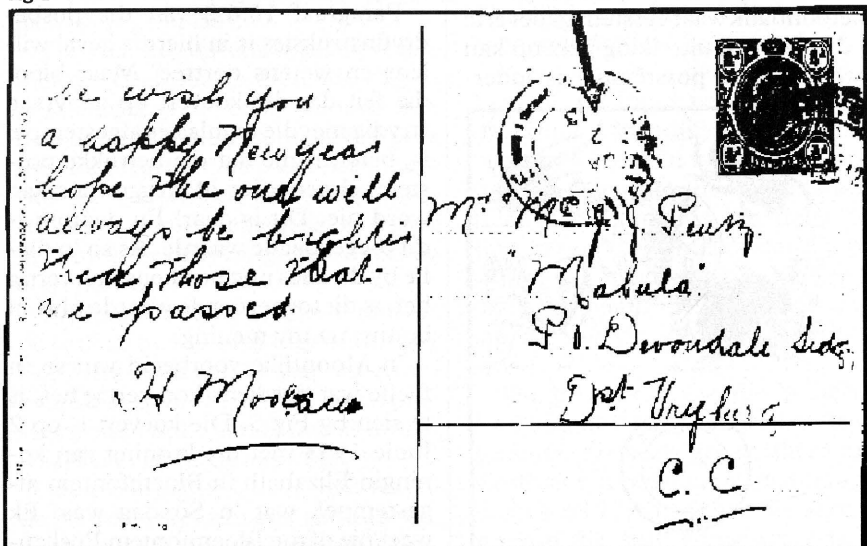 We wish you
a happy New Year
hope the one will
always be brighter
then those that
are passed.
H
Mr
"Mabula"
P.O. Devondale Sidg,
Dst Vryburg
C. C